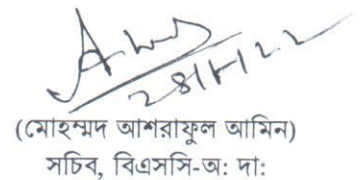 (মোহম্মদ আশরাফুল আমিন)
সচিব, বিএসসি-অ: দা: